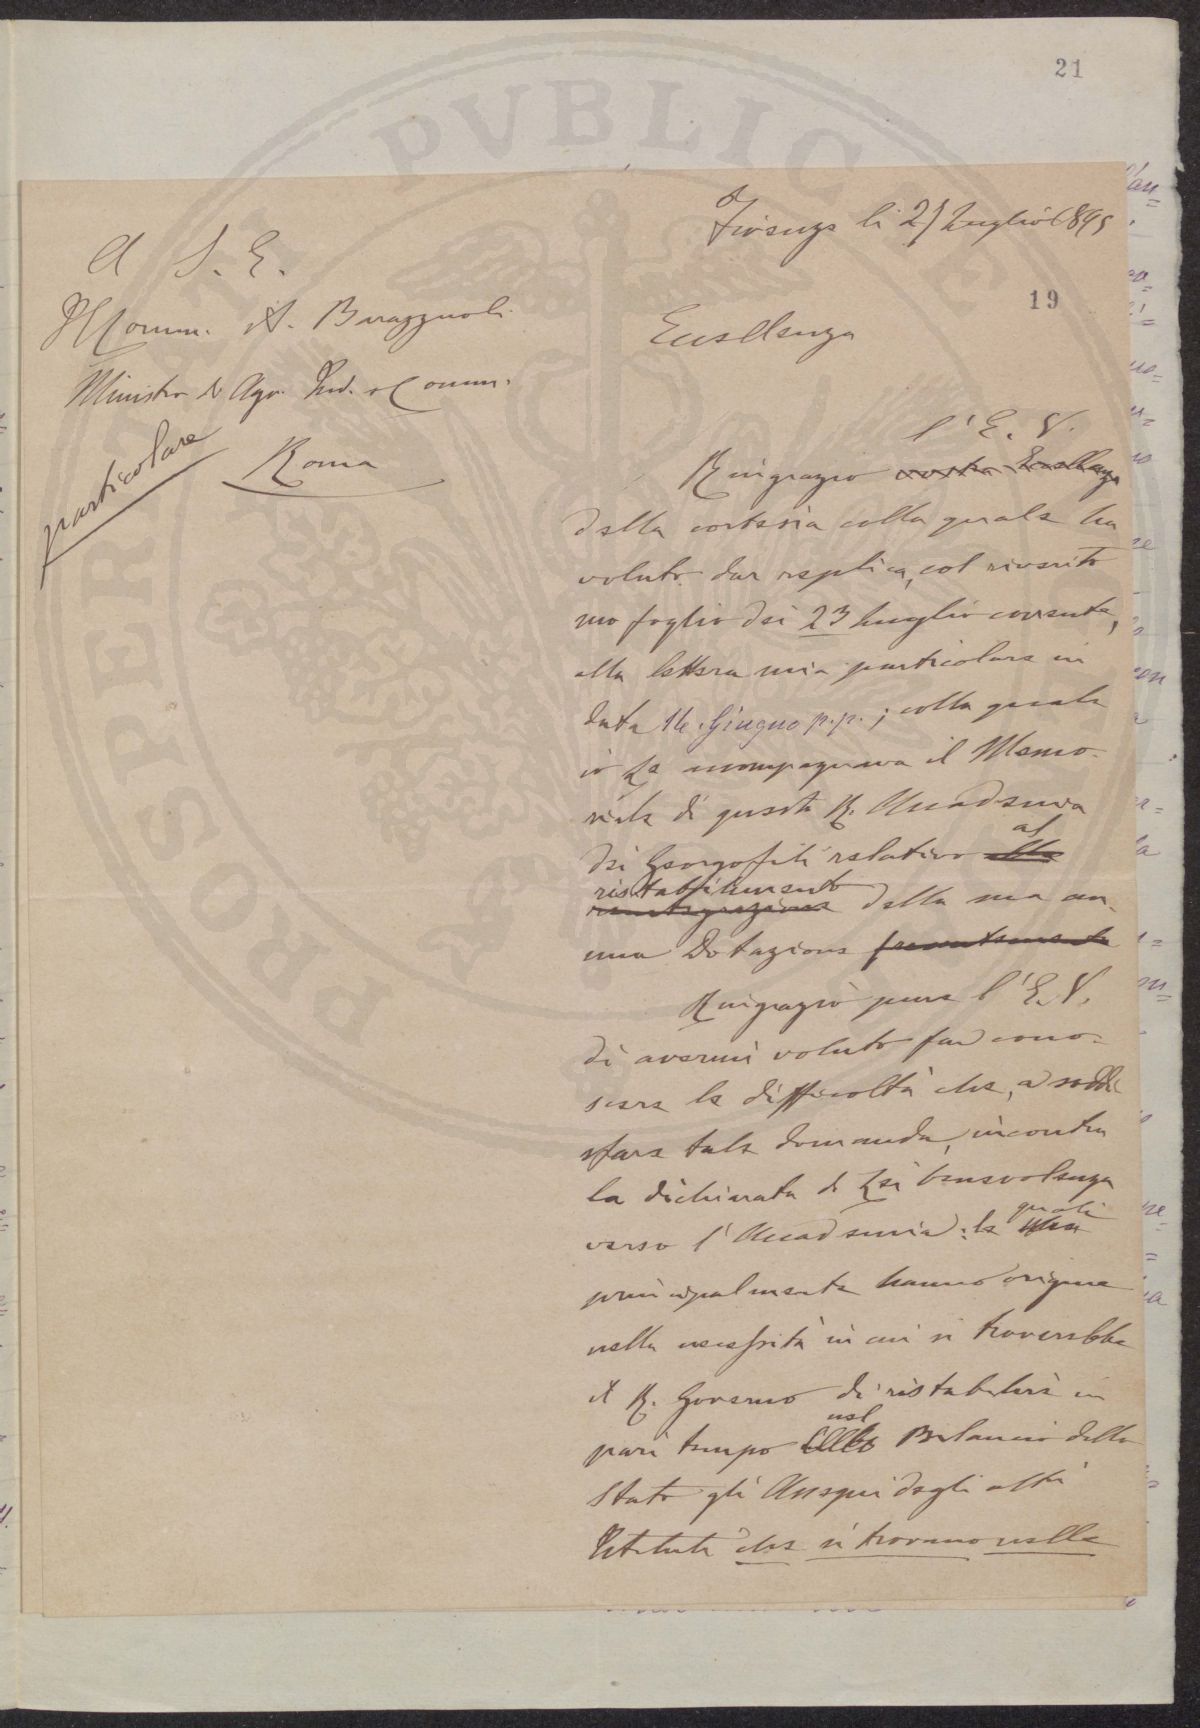 21
Firenze li 27 Luglio 1895
A S. E.
Il Comm. A. Barazzuoli
Ministro di Agr. Ind. e Comm.
Roma
particolare
19
Eccellenza
l'E. V.
Ringrazio vostra Eccellenza
della cortesia colla quale ha
voluto dar replica, col riverito
suo foglio dei 23 luglio corrente,
alla lettera mia particolare in
data 16. Giugno p.p.; colla quale
io Le accompagnava il Memo-
riale di questa R. Accademia
dei Georgofili relativo alla
al
ristabilimento
reintegrazione della sua an-
nua Dotazione
Ringrazio pure l'E. V.
di avermi voluto far cono-
scere le difficoltà che, a soddi
sfare tale domanda, incontra
la dichiarata di Lei benevolenza
verso l'Accademia: le quali
principalmente hanno origine
nella necessità in cui si troverebbe
il R. Governo di ristabilire in
pari tempo nel Bilancio dello
Stato gli Assegni degli altri
Istituti che si trovano nelle
PVBLICAE
PROSPERITATI